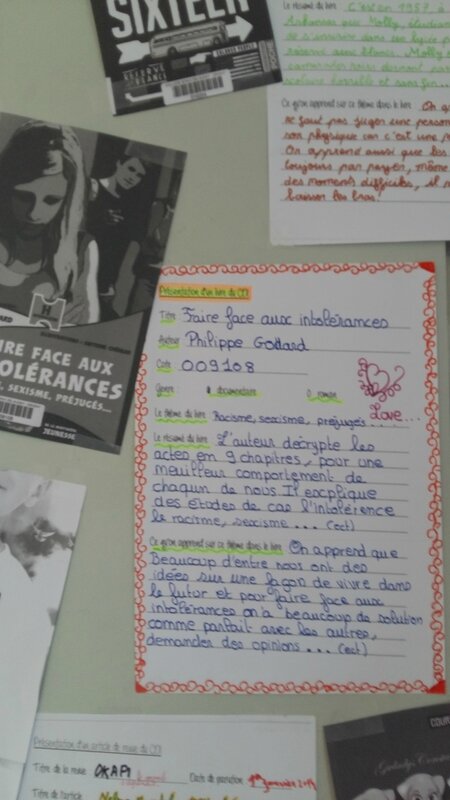 SIXTEEN
Le résumé du livre C'est en 1957 à
Arkansas que Molly, étudian
de s'inscrire dans un lycée p
réservé aux blancs. Molly
camarades noirs devront
scolaire horrible et sans fin...
Ce qu'on apprend sur ce thème dans le livre On
ne faut pas juger une person
son physique car c'est une
On apprend aussi que les
toujours par payer, même
des moments difficiles, il
baisser les bras!
IRE FACE AUX
OLÉRANCES
, SEXISME, PRÉJUGÉS...
DE LA MARTINIÈRE
JEUNESSE
Présentation d'un livre du CDI
Titre Faire face aux intolérances
Auteur Philippe Godard
Cote 009108
Genre : documentaire roman
Love...
Le thème du livre Racisme, sexisme, préjugés ...
Le résumé du livre L'auteur décrypte les
actes en 9 chapitres, pour une
meuilleur comportement de
chaqun de nous. Il escplique
des études de cas l'intolérence
le racisme, sexisme ... (ect)
Ce qu'on apprend sur ce thème dans le livre On apprend que
Beaucoup d'entre nous ont des
idées sur une façon de vivre dans
le futur et pour faire face aux
intolérances on a beaucoup de solution
comme parlait avec les autres,
demander des opinions ... (ect)
Présentation d'un article de revue du CDI
Titre de la revue OKAPI Date de parution
Titre de l'article